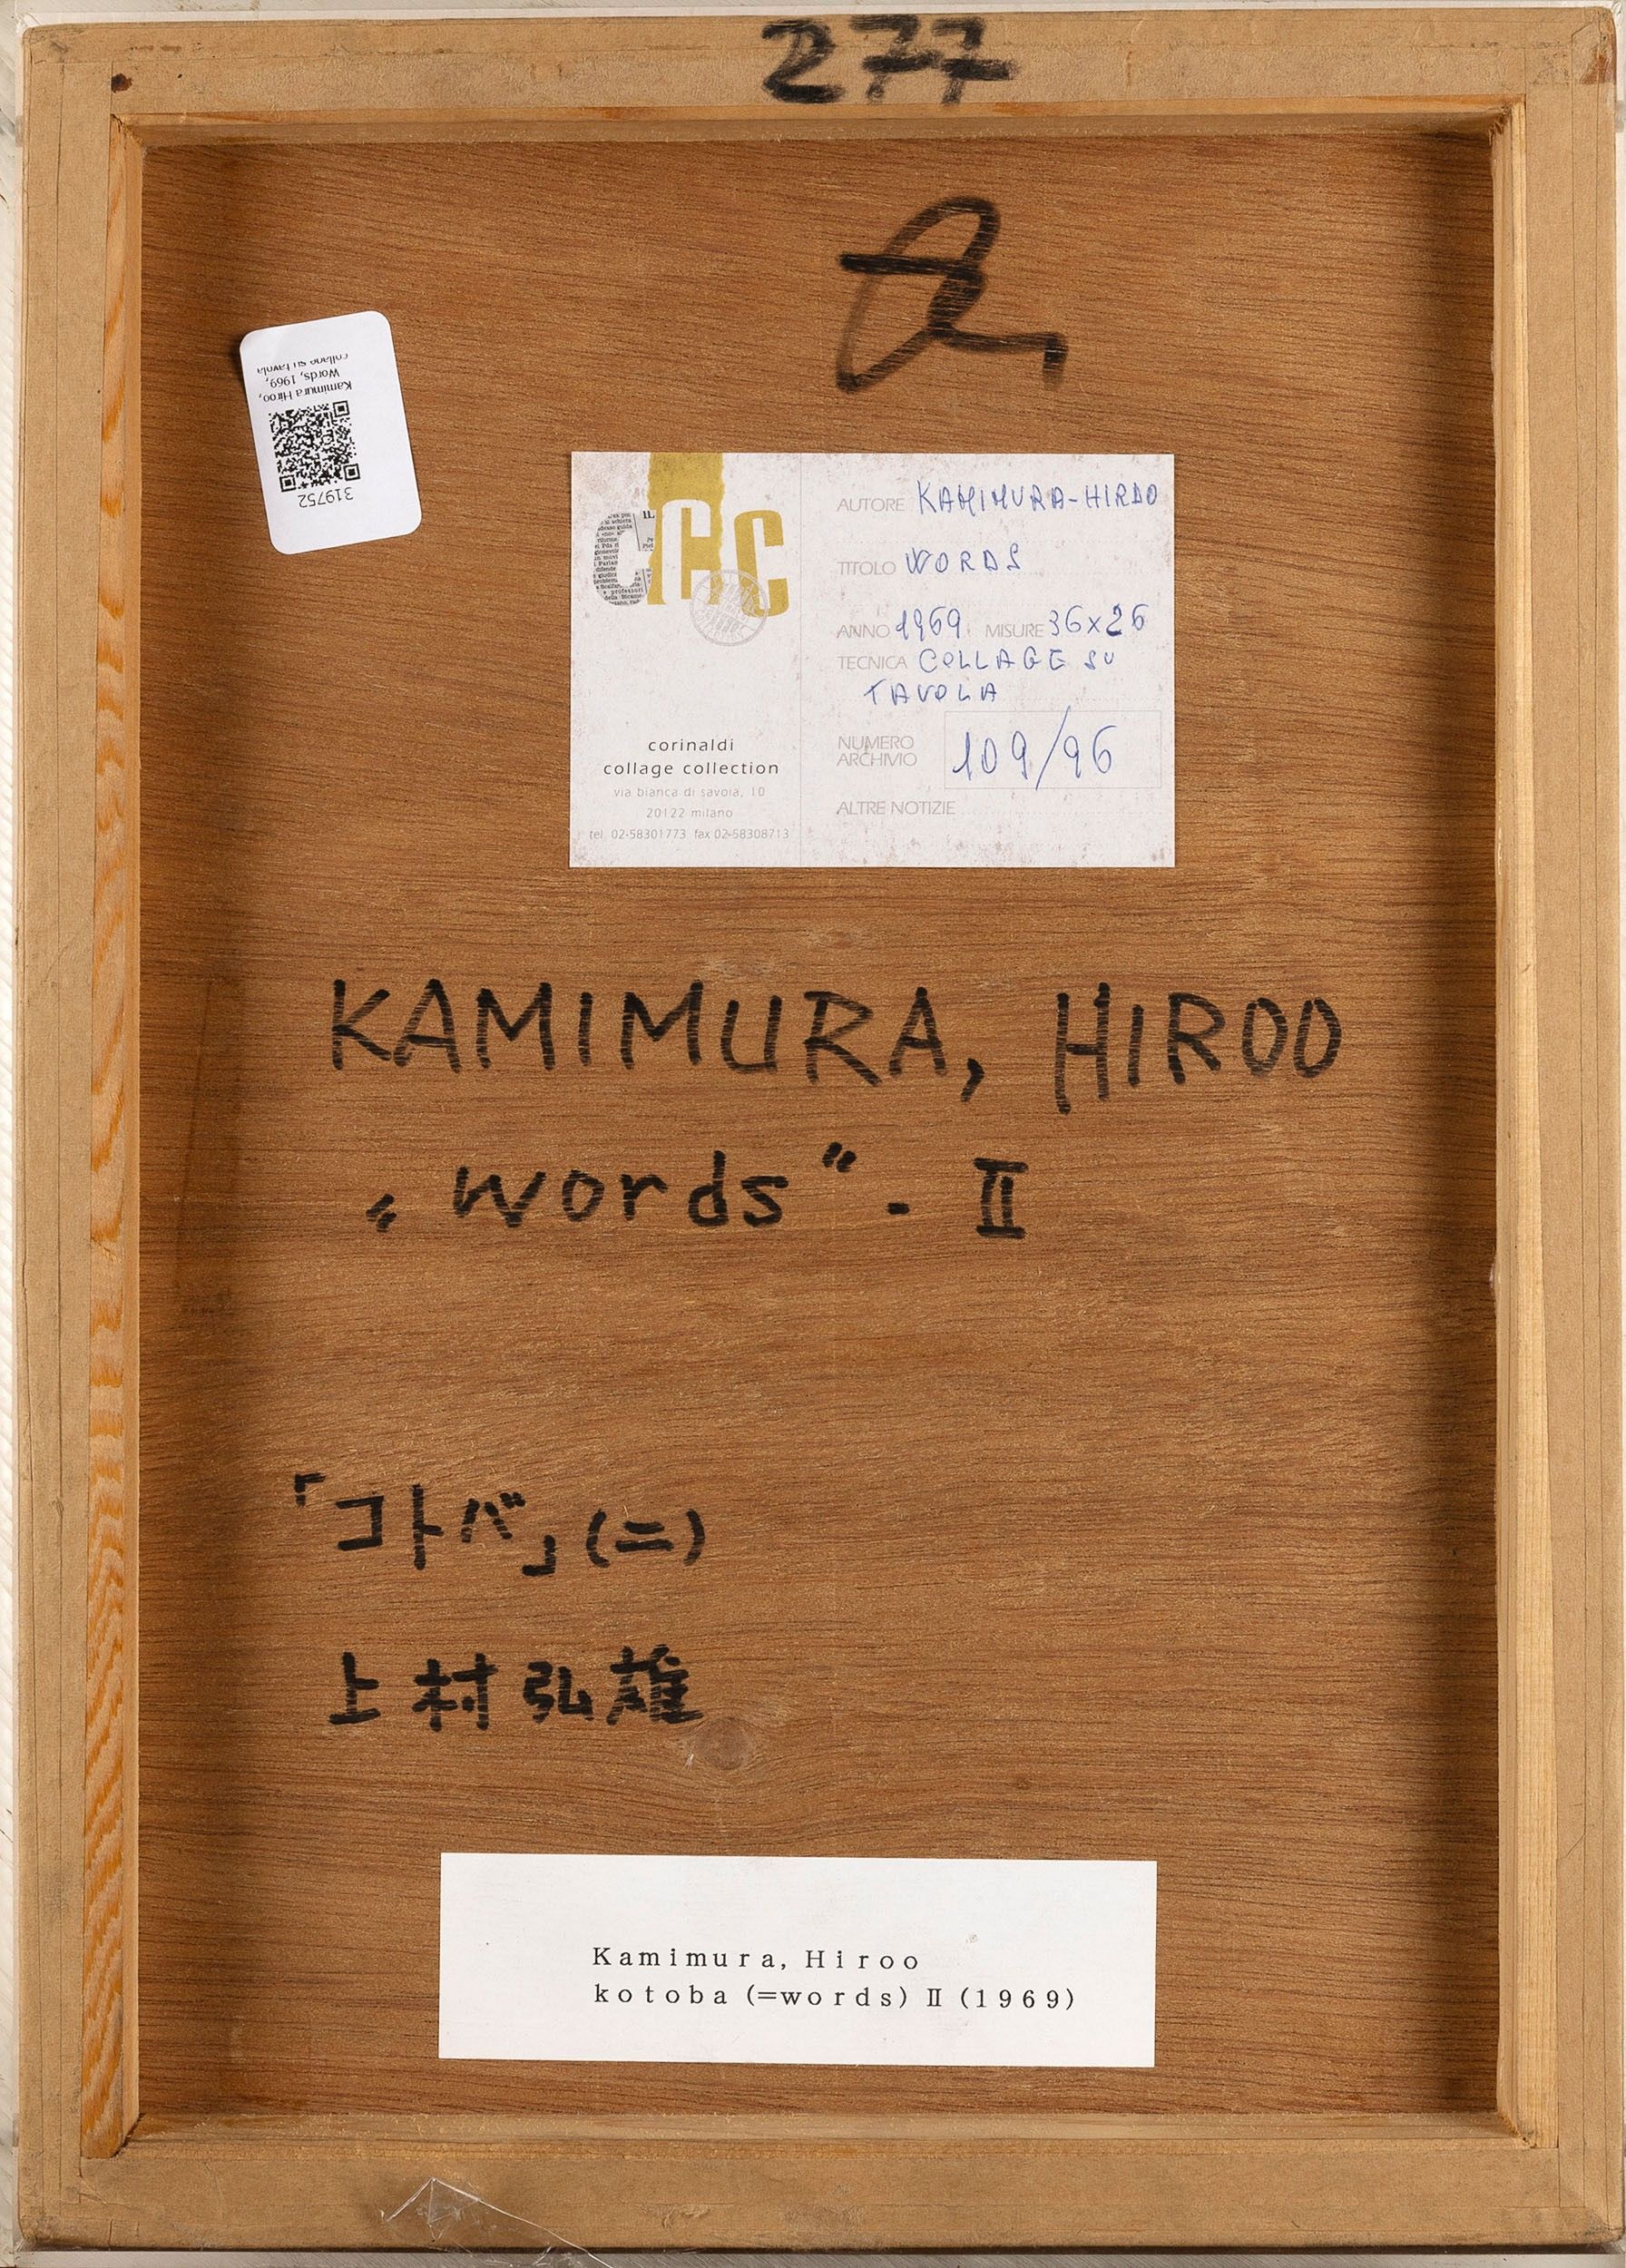 277
319752
Kamimura Hiroo,
Words, 1969,
collage su tavola
CCC
corinaldi
collage collection
via bianca di savoia, 10
20122 milano
tel. 02-58301773 fax 02-58308713
AUTORE KAMIMURA-HIROO
TITOLO WORDS
ANNO 1969 MISURE 36x26
TECNICA COLLAGE SU
TAVOLA
NUMERO
ARCHIVIO 109/96
ALTRE NOTIZIE
KAMIMURA, HIROO
„words“ - II
「コトバ」(二)
上村弘雄
Kamimura, Hiroo
kotoba (=words) Ⅱ (1969)